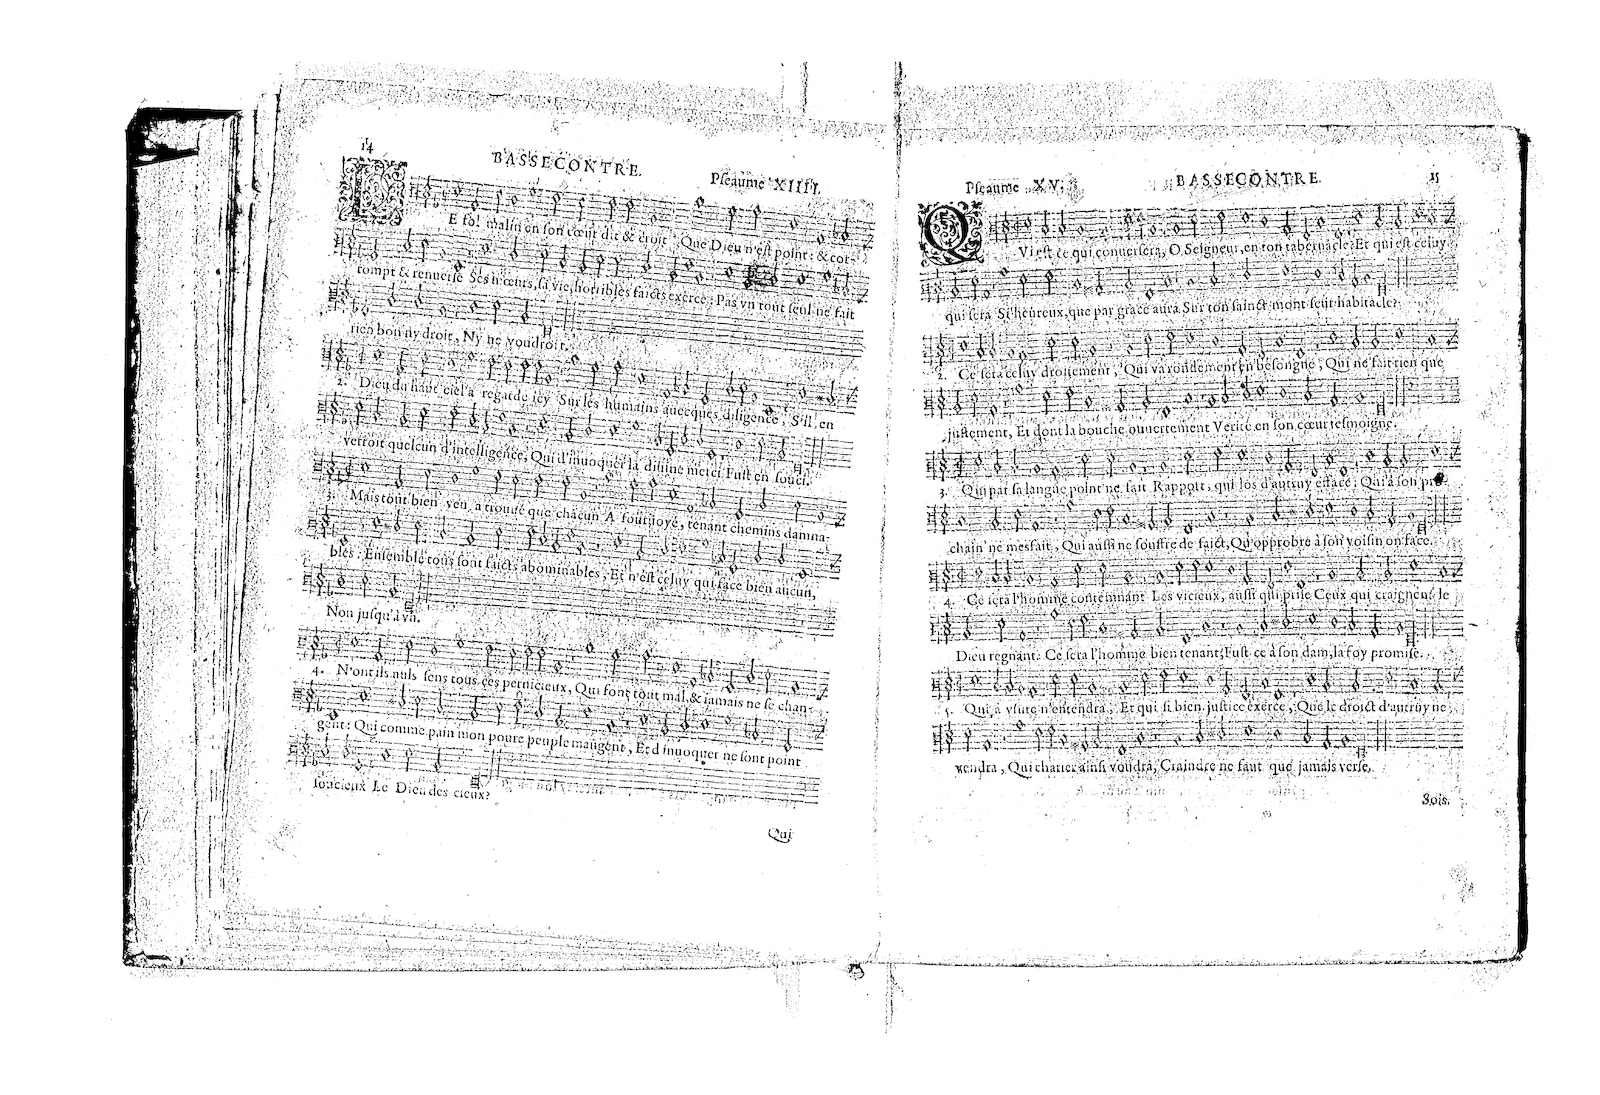 14
BASSECONTRE.
Pſeaume XIIII.
LE fol malin en ſon cœur dit & croit, Que Dieu n'eſt point: & cor-
rompt & renuerſe Ses mœurs, ſa vie, horribles faicts exerce: Pas vn tout ſeul ne fait
rien bon ny droit, Ny ne voudroit.
2. Dieu du haut ciel a regardé icy Sur les humains auecques diligence, S'il en
verroit quelcun d'intelligence, Qui d'inuoquer la diuine merci Fuſt en ſouci.
3. Mais tout bien veu, a trouué que chacun A fouruoyé, tenant chemins damna-
bles: Enſemble tous ſont faicts abominables, Et n'eſt celuy qui face bien aucun,
Non juſqu'à vn.
4. N'ont ils nuls ſens tous ces pernicieux, Qui font tout mal, & iamais ne ſe chan-
gent: Qui comme pain mon poure peuple mangent, Et d'inuoquer ne ſont point
ſoucieux Le Dieu des cieux?
Qui
Pſeaume XV.
BASSECONTRE.
15
QVi eſt ce qui conuerſera, O Seigneur, en ton tabernacle? Et qui eſt celuy
qui ſera Si heureux, que par grace aura Sur ton ſainct mont ſeur habitacle?
2. Ce ſera celuy droitement, Qui va rondement en beſongne, Qui ne fait rien que
juſtement, Et dont la bouche ouuertement Verité en ſon cœur teſmoigne.
3. Qui par ſa langue point ne fait Rapport, qui los d'autruy efface: Qui à ſon pro-
chain ne mesfait, Qui auſſi ne ſouffre de faict, Qu'opprobre à ſon voiſin on face.
4. Ce ſera l'homme contemnant Les vicieux, auſſi qui priſe Ceux qui craignent le
Dieu regnant: Ce ſera l'homme bien tenant, Fuſt ce à ſon dam, la foy promiſe.
5. Qui à vſure n'entendra, Et qui ſi bien juſtice exerce, Que le droict d'autruy ne
vendra, Qui charier ainſi voudra, Craindre ne faut que jamais verſe.
Sois.